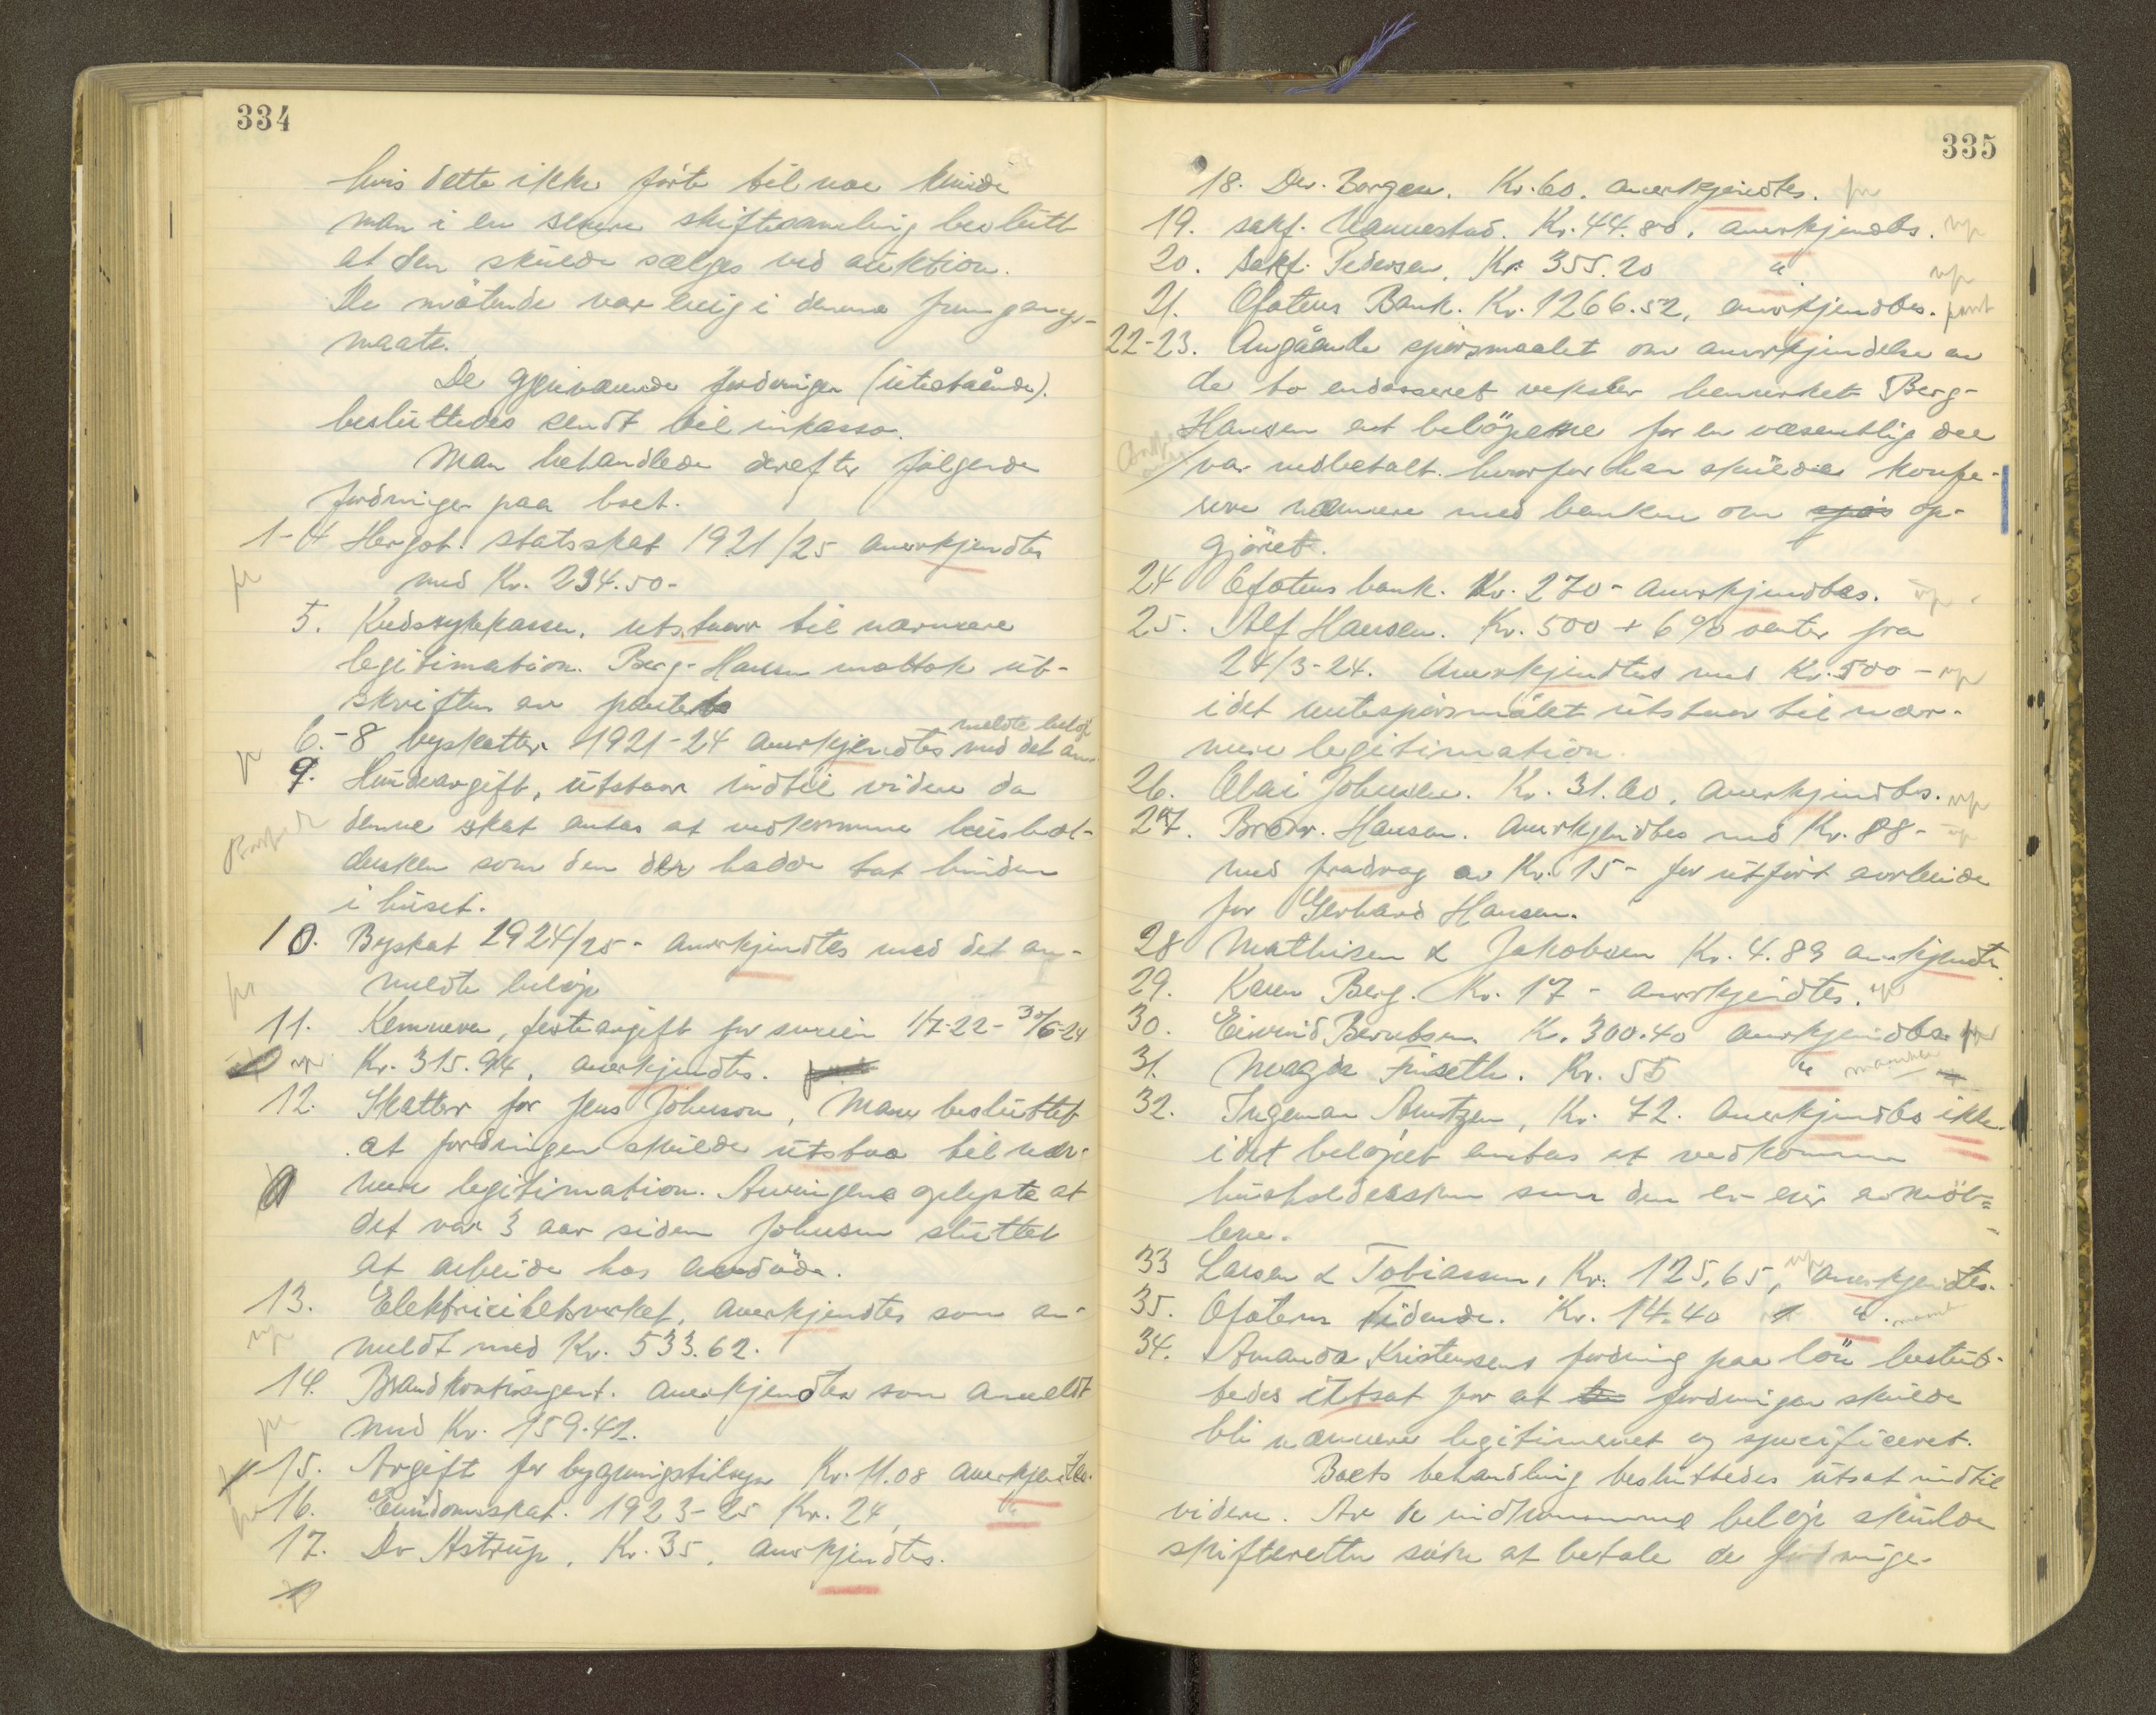 334
hvis dette ikke förte til noe kunde
man i en senere skiftesamling beslutte
at den skulde sælges ved auktion.
De mötende var enig i denne fremgangs-
maate.
De gjenværende fordringer (utestaående).
besluttedes sendt til inkasso.
Man behandlede derefter følgende
fordringer paa boet.
1-4 Hergot. statsskat 1921/25 anerkjendtes
med Kr. 234.50-
5. Kredssykekassen, utstaar til nærmere
legitimation. Berg-Hansen mottok ut-
skriften av
6.-8 byskatter 1921-24 anerkjendtes med det an-
meldte beløp
9. Hundeavgift, utstaar indtil videre da
denne skat antas at vedkomme hushol-
dersken som den der hadde tat hunden
i huset.
10. Byskat 1924/25- anerkjendtes med det an-
meldte beløp
11. Kemneren, festeavgift for 1/7-22-30/6-24
Kr. 315.94, anerkjendtes.
12. Skatter for Jens Johnson, Man besluttet
at fordringen skulde utstaa til nær-
mere legitimation. Arvingene oplyste at
det var 3 aar siden Johnsen sluttet
at arbeide hos avdöde.
13. Elektricitetsverket, anerkjendtes som an-
meldt med Kr. 533.62.
14. Brandkontingent. anerkjendtes som anmeldt
med Kr. 159.41.
15. Avgift for bygningstilsyn Kr. 11.08 anerkjendtes.
16. Eiendomsskat. 1923-25 Kr. 24, "
17. Dr Astrup, Kr. 35, anerkjendtes.
335
18. Dr. Borgen. Kr. 60. anerkjendtes.
19. sakf. Kr. 44.80, anerkjendtes.
20. Sakf. Pedersen. Kr 355.20 "
21. Ofotens Bank. Kr. 1266.52, anerkjendtes. pant
22-23. Angående spörsmaalet om anerkjendelse av
de to endosseret veksler bemerket Berg-
Hansen at belöpene for en væsentlig del
var nedbetalt. hvorfor han skulde konfe-
rere nærmere med banken om spörs op-
gjöret.
24 Ofotens bank. Kr. 270- anerkjendtes.
25. Alf Hansen. Kr. 500 + 6% renter fra
24/3-24. Anerkjendtes med Kr. 500-
idet rentespörsmålet utstaar til nær-
mere legitimation.
26. Olai Johnsen. Kr. 31.60, anerkjendtes.
27. Brdr. Hansen. Anerkjendtes med Kr. 88-
med fradrag av Kr. 15- for utfört avrbeide
for Gerhard Hansen.
28 Mathisen & Jakobsen Kr. 4.89 anerkjendtes
29. Karen Berg. Kr. 17- anerkjendtes.
30. Eivind Berntsen. Kr. 300.40 anerkjendtes
31. Magda Finseth. Kr. 55 "
32. Ingeman Arntzen, Kr. 72. Anerkjendtes ikke.
idet belöpet antas at vedkomme
husholdersken som den er eier av möb-
lene.
33 Larsen & Tobiassen, Kr. 125,65, anerkjendtes.
35. Ofotens Tidende. Kr. 14.40 "
34. Amanda Kristensens fordring paa lön beslut-
tedes utsat for at fordringen skulde
bli nærmere legitimeret og specificeret.
Boets behandling besluttedes utsat indtil
videre. Av de indkommne belöp skulde
skifteretten söke at betale de fordringer